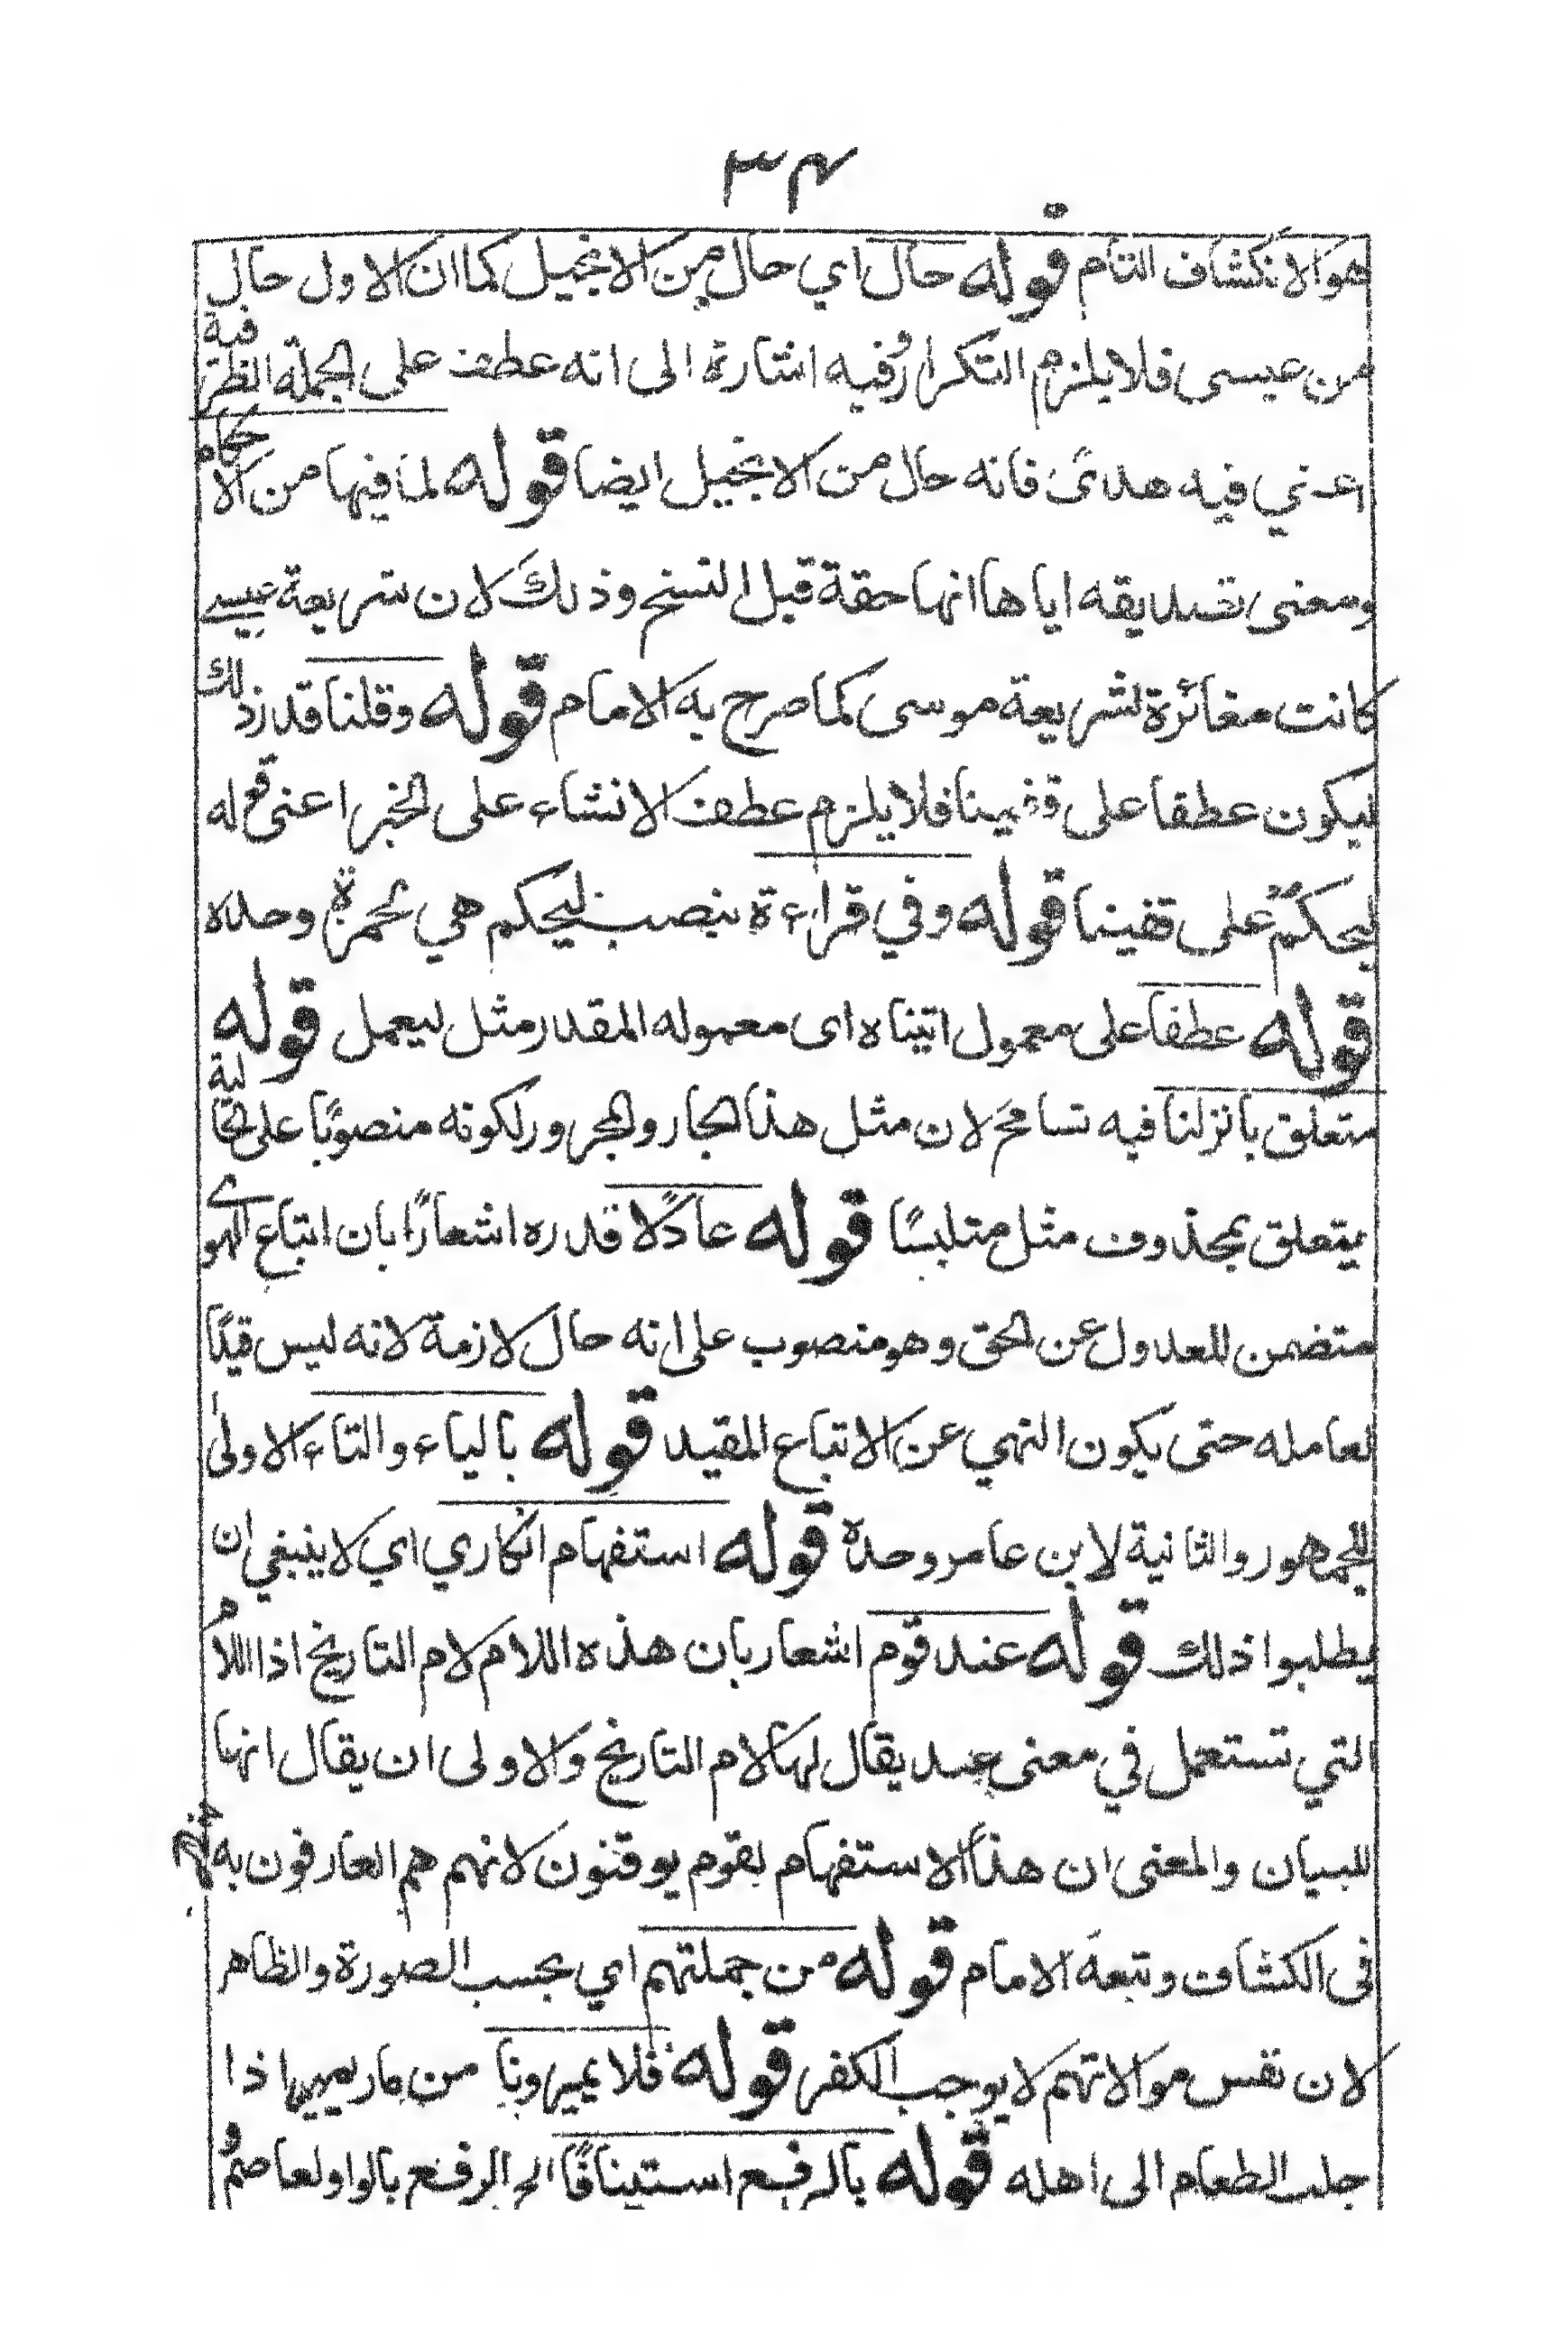 ٣٤
هو الانكشاف التام قوله حال اي حال من الانجيل كما ان الاول حال
من عيسى فلا يلزم التكرار وفيه اشارة الى انه عطف على الجملة الظرفية
اعني فيه هدى فانه حال من الانجيل ايضا قوله لما فيها من الاحكام
ومعنى تصديقه اياها انها حقة قبل النسخ وذلك لان شريعة عيسى
كانت مغائرة لشريعة موسى كما صرح به الامام قوله وقلنا قدر ذلك
ليكون عطفا على قفينا فلا يلزم عطف الانشاء على الخبر اعنى قوله
ليحكم على قفينا قوله وفي قراءة بنصب ليحكم هي لحمزة وحده
قوله عطفا على معمول اتيناه اى معموله المقدر مثل ليعمل قوله
متعلق بانزلنا فيه تسامح لان مثل هذا الجار والمجرور لكونه منصوبًا على الحالية
يتعلق بمحذوف مثل متلبسًا قوله عادلًا قدره اشعارًا بان اتباع الهوى
متضمن للعدول عن الحق وهو منصوب على انه حال لازمة لانه ليس قيدًا
لعامله حتى يكون النهي عن الاتباع المقيد قوله بالياء والتاء الاولى
للجمهور والثانية لابن عامر وحده قوله استفهام انكاري اي لا ينبغي ان
يطلبوا ذلك قوله عند قوم اشعار بان هذه اللام لام التاريخ اذا اللام
التي تستعمل في معنى عند يقال لها لام التاريخ والاولى ان يقال انها
للبيان والمعنى ان هذا الاستفهام لقوم يوقنون لانهم هم العارفون به
فى الكشاف وتبعه الامام قوله من جملتهم اي بحسب الصورة والظاهر
لان نفس موالاتهم لا يوجب الكفر قوله فلا يميرونا من مار يمير اذا
جلب الطعام الى اهله قوله بالرفع استينافًا الخ الرفع بالواو لعاصم و